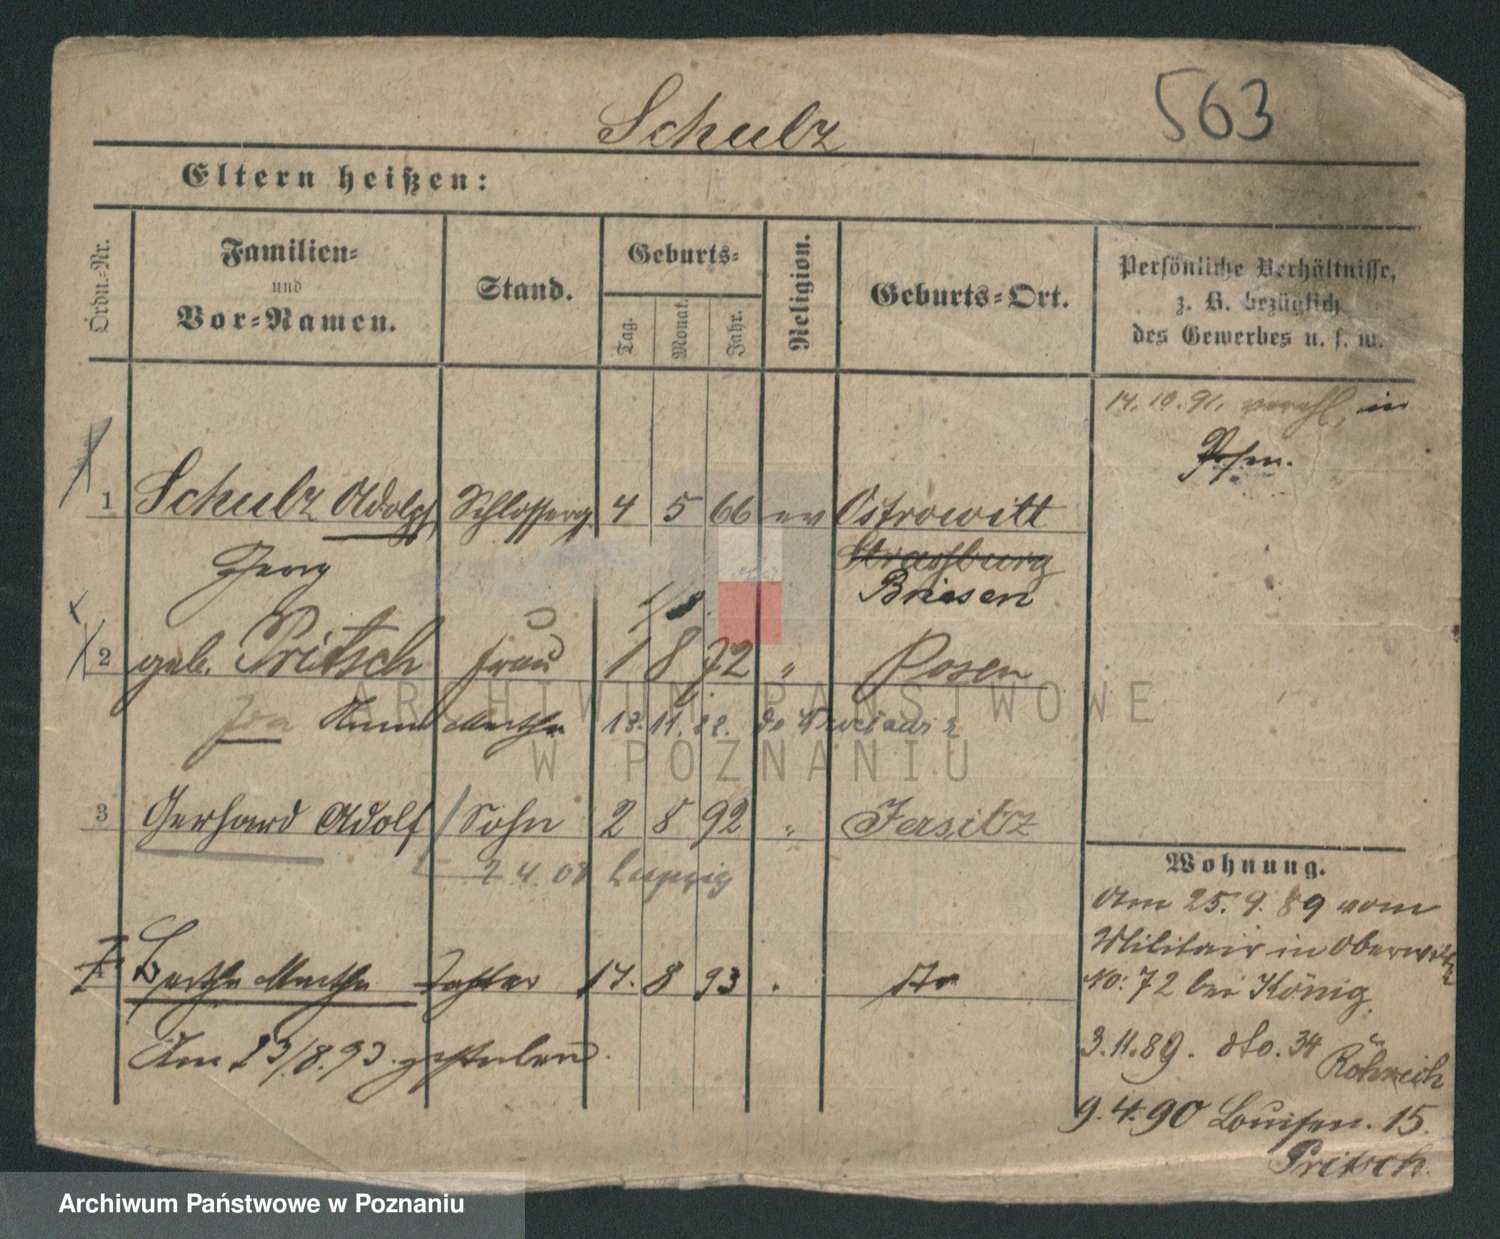 Schulz
563
Eltern heißen:
Ordn.-Nr.
Familien-
und
Vor-Namen.
Stand.
Geburts-
Tag.
Monat.
Jahr.
Religion.
Geburts-Ort.
Persönliche Verhältnisse,
z. B. bezüglich
des Gewerbes u. s. w.
14.10.91. verehl. in
Posen.
1 Schulz Adolph Schlosserg. 4 5 66 ev Ostrowitt
Strasburg
Briesen
2 geb. Pritsch Frau 1 8 72 " Posen
Anna Martha 13.11.
3 Gerhard Adolf Sohn 2 8 92 " Jersitz
2 4. 08 Leipzig
4 Bertha Martha Tochter 17. 8 93 . dto
Am 23/8.93. gestorben.
Wohnung.
Am 25. 9. 89 vom
Militair in Oberwilda
No: 72 bei König
3.11.89. dto. 34
Röhrich
9.4.90 Louisen. 15.
Pritsch.
ARCHIWUM PAŃSTWOWE
W POZNANIU
Archiwum Państwowe w Poznaniu